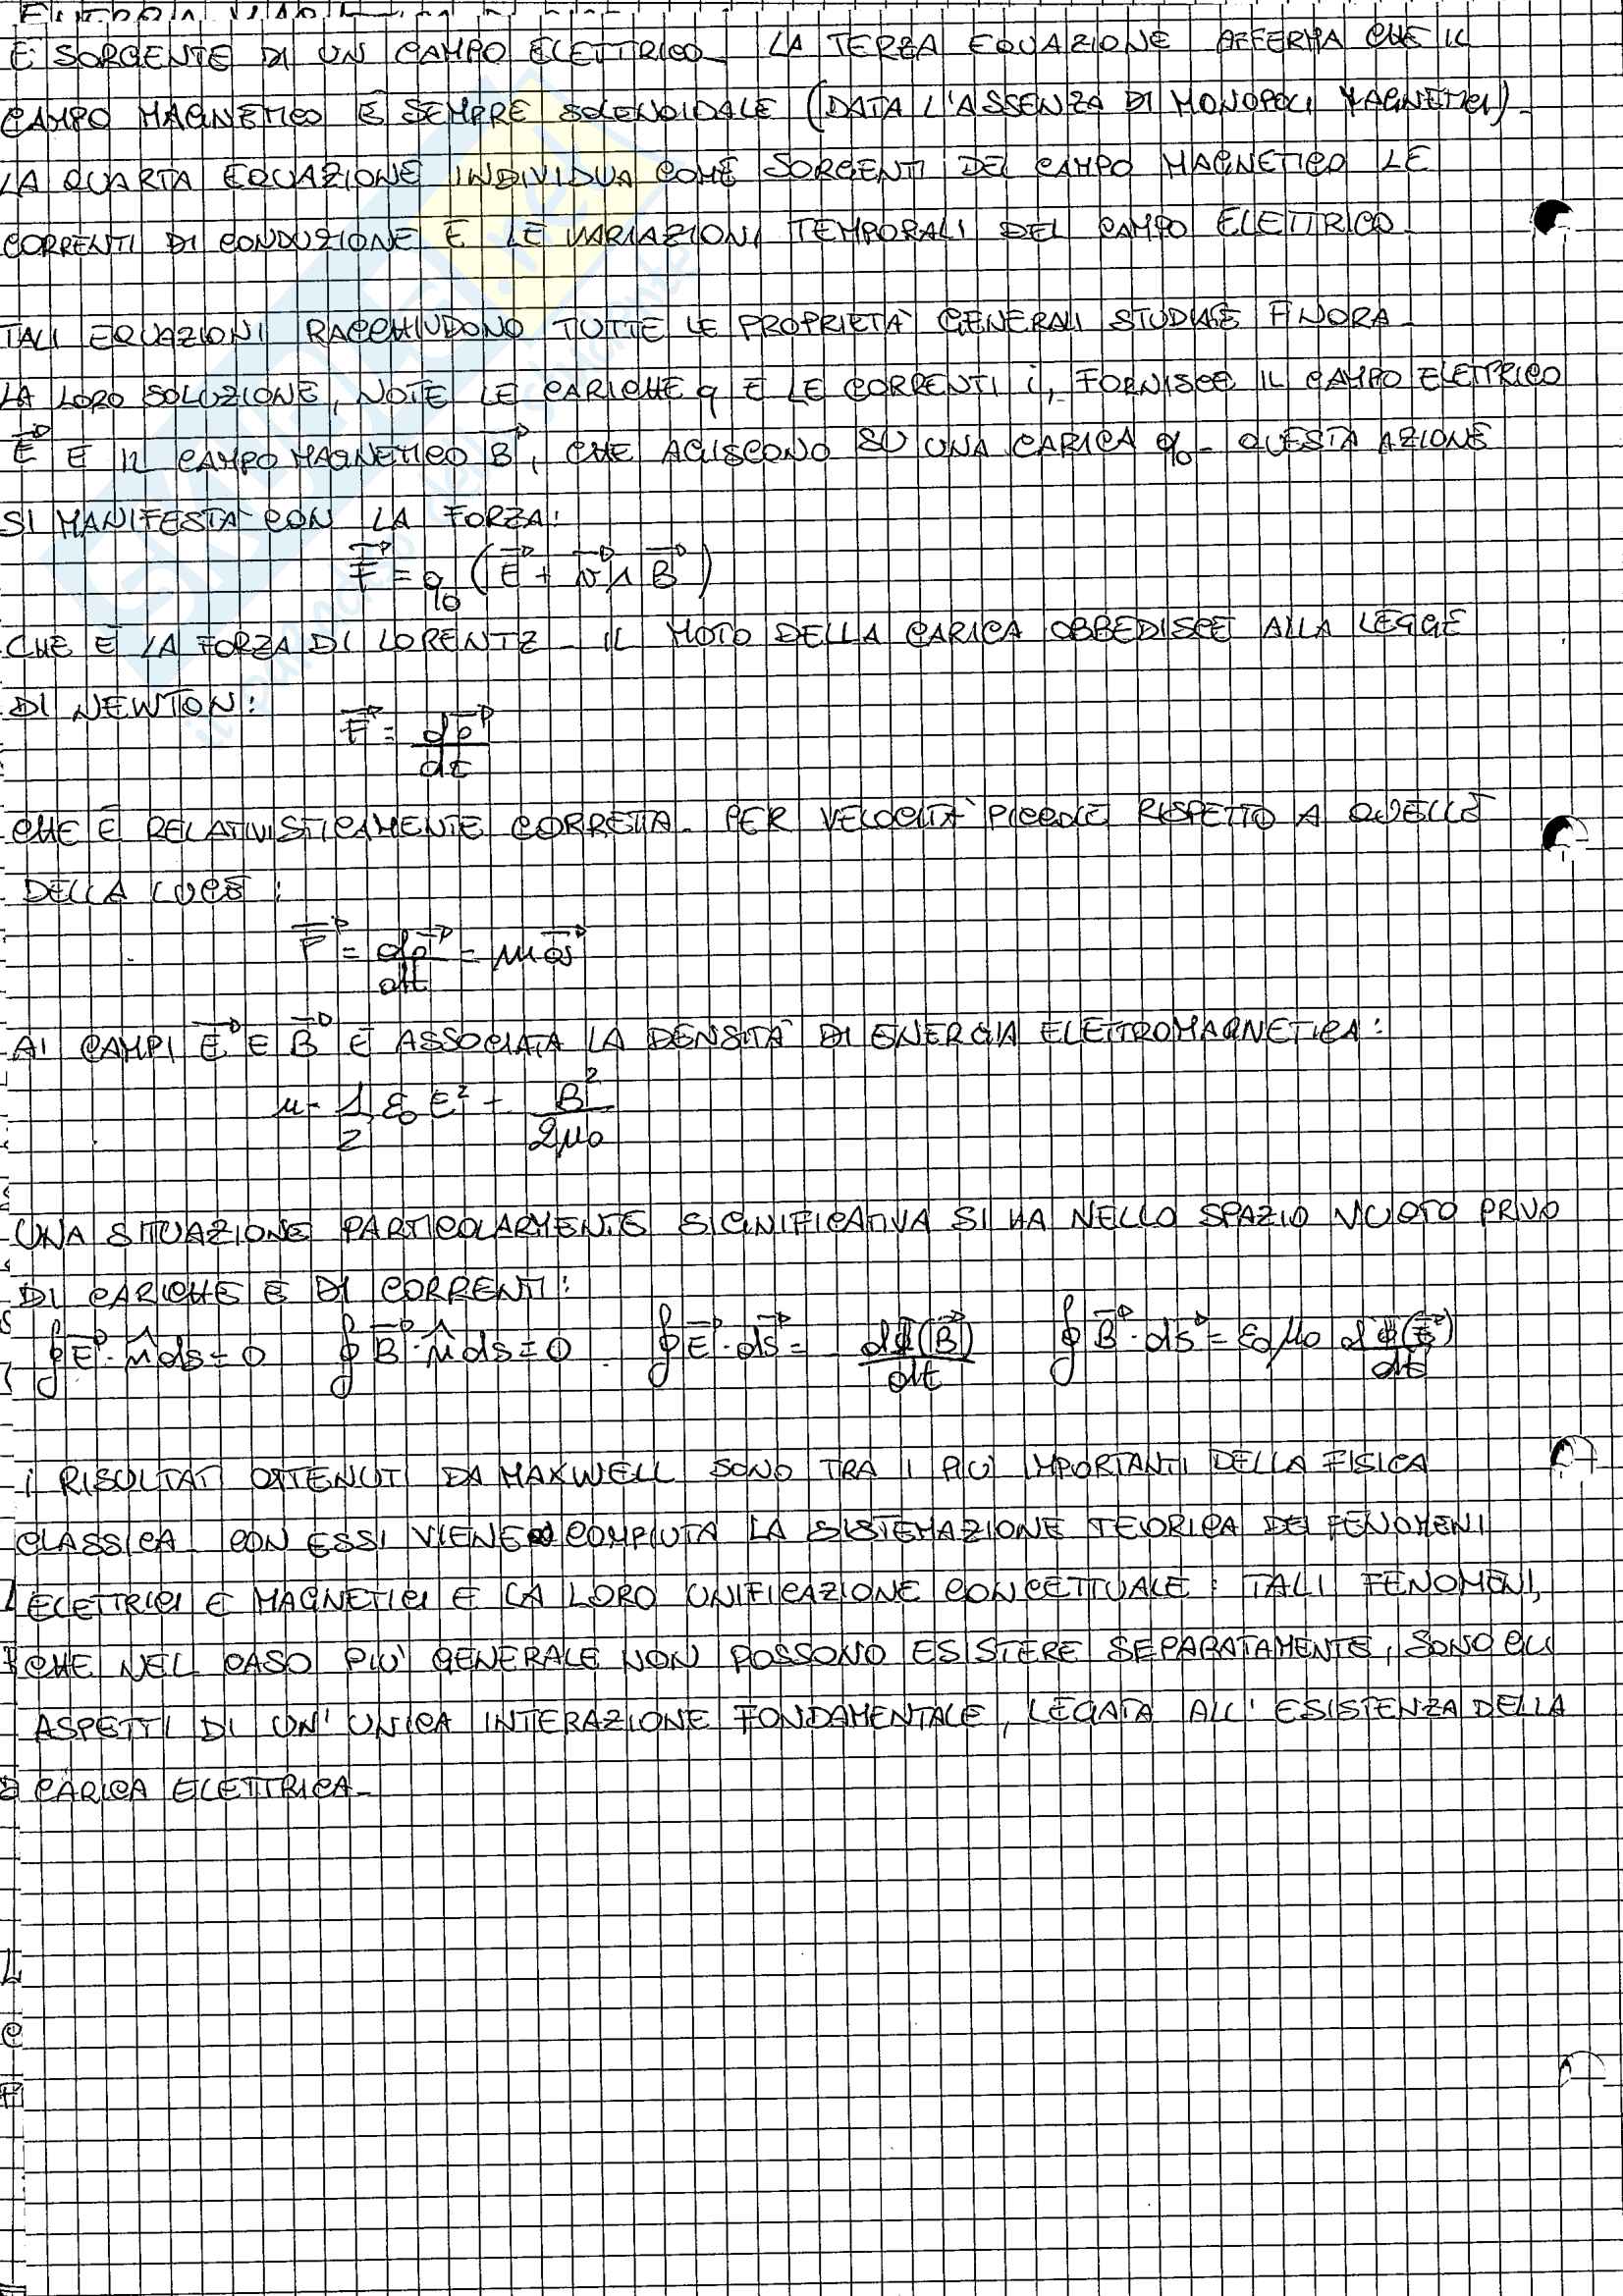 È SORGENTE DI UN CAMPO ELETTRICO_ LA TERZA EQUAZIONE AFFERMA CHE IL
CAMPO MAGNETICO È SEMPRE SOLENOIDALE (DATA L'ASSENZA DI MONOPOLI MAGNETICI)_
LA QUARTA EQUAZIONE INDIVIDUA COME SORGENTI DEL CAMPO MAGNETICO LE
CORRENTI DI CONDUZIONE E LE VARIAZIONI TEMPORALI DEL CAMPO ELETTRICO_
TALI EQUAZIONI RACCHIUDONO TUTTE LE PROPRIETÀ GENERALI STUDIATE FINORA_
LA LORO SOLUZIONE, NOTE LE CARICHE q E LE CORRENTI i, FORNISCE IL CAMPO ELETTRICO
E⃗ E IL CAMPO MAGNETICO B⃗, CHE AGISCONO SU UNA CARICA q₀_ QUESTA AZIONE
SI MANIFESTA CON LA FORZA:
F⃗ = q₀ (E⃗ + v⃗ ∧ B⃗)
CHE È LA FORZA DI LORENTZ_ IL MOTO DELLA CARICA OBBEDISCE ALLA LEGGE
DI NEWTON:
F⃗ = dp⃗/dt
CHE È RELATIVISTICAMENTE CORRETTA_ PER VELOCITÀ PICCOLE RISPETTO A QUELLO
DELLA LUCE:
F⃗ = dp⃗/dt = ma⃗
AI CAMPI E⃗ E B⃗ È ASSOCIATA LA DENSITÀ DI ENERGIA ELETTROMAGNETICA:
u = 1/2 ε₀ E² + B²/2μ₀
UNA SITUAZIONE PARTICOLARMENTE SIGNIFICATIVA SI HA NELLO SPAZIO VUOTO PRIVO
DI CARICHE E DI CORRENTI:
∮ E⃗ · n̂ ds = 0 ∮ B⃗ · n̂ ds = 0 ∮ E⃗ · ds⃗ = - dΦ(B⃗)/dt ∮ B⃗ · ds⃗ = ε₀ μ₀ dΦ(E⃗)/dt
I RISULTATI OTTENUTI DA MAXWELL SONO TRA I PIÙ IMPORTANTI DELLA FISICA
CLASSICA_ CON ESSI VIENE COMPIUTA LA SISTEMAZIONE TEORICA DEI FENOMENI
ELETTRICI E MAGNETICI E LA LORO UNIFICAZIONE CONCETTUALE: TALI FENOMENI,
CHE NEL CASO PIÙ GENERALE NON POSSONO ESISTERE SEPARATAMENTE, SONO GLI
ASPETTI DI UN'UNICA INTERAZIONE FONDAMENTALE, LEGATA ALL'ESISTENZA DELLA
CARICA ELETTRICA_